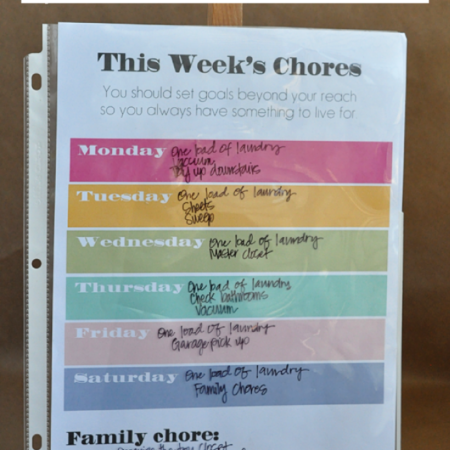 This Week's Chores
You should set goals beyond your reach
so you always have something to live for
Monday one load of laundry
Vaccum
Tidy up downstairs
Tuesday one load of laundry
Sheets
Sweep
Wednesday one load of laundry
Master closet
Thursday one load of laundry
Check bathrooms
Vacuum
Friday one load of laundry
Garage pick up
Saturday one load of laundry
Family Chores
Family chore:
closet